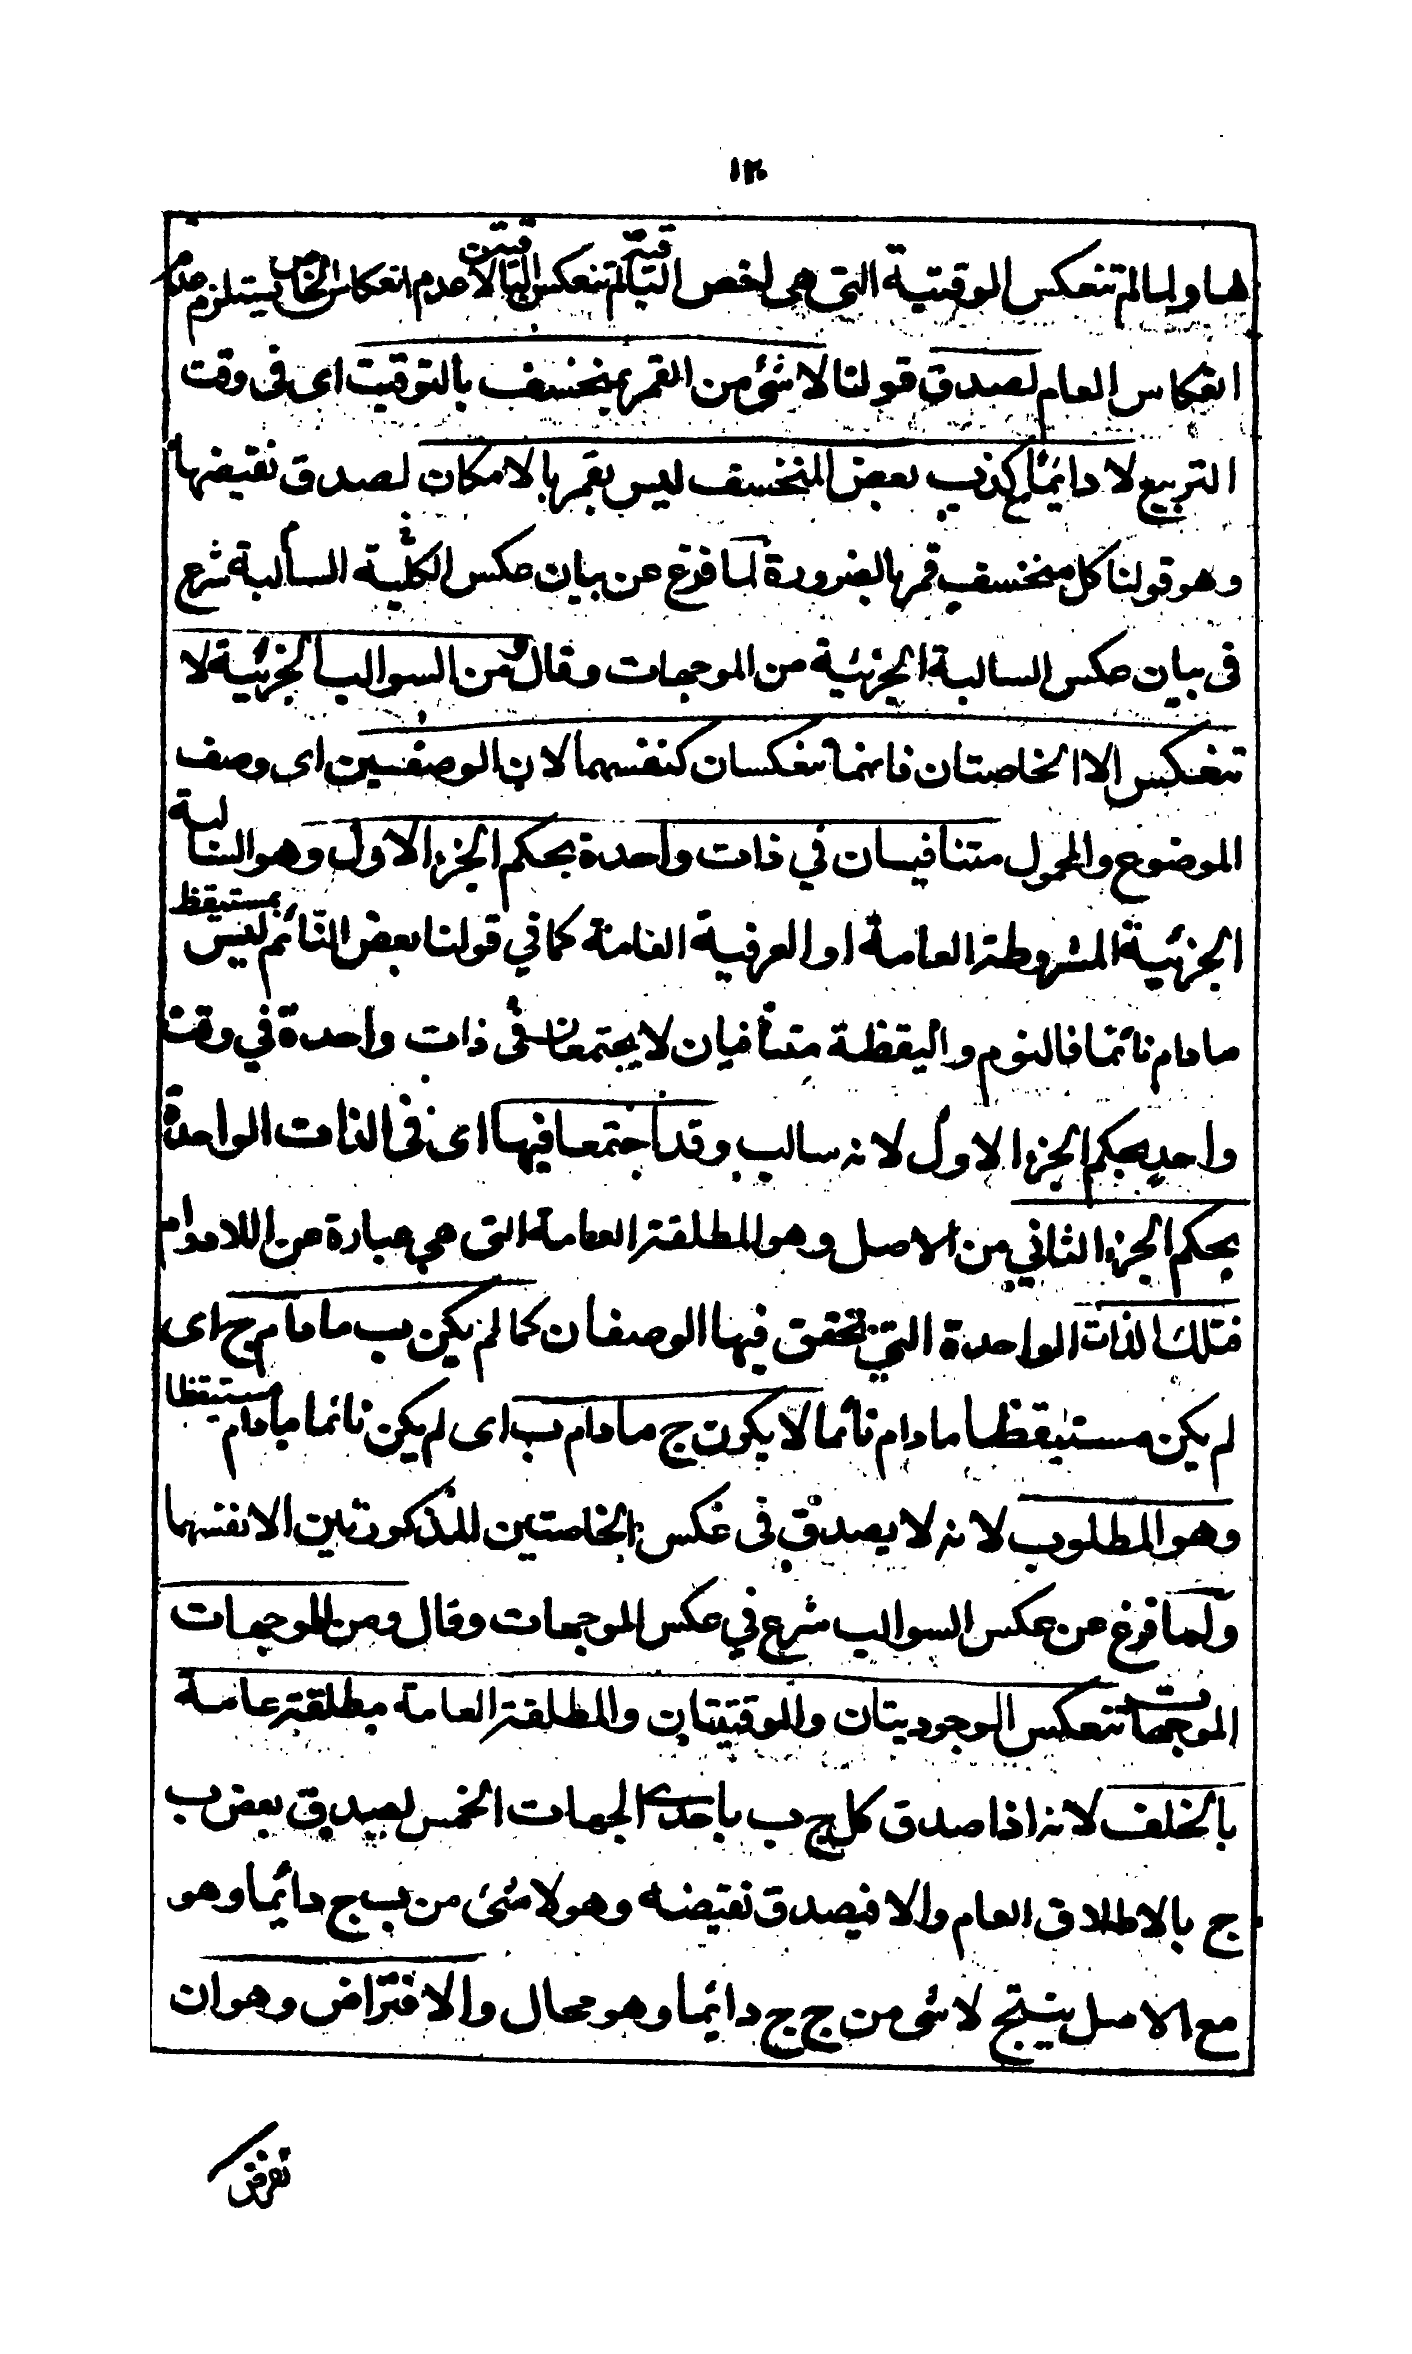 ١٢٠
ها ولما لم تنعكس الوقتية التى هى اخص البتاقية لم تنعكس البتاقيتن لا عدم انعكاس الخاص يستلزم عدم
انعكاس العام لصدق قولنا لا شئ من القمر بمنخسف بالتوقيت اى فى وقت
التربيع لا دائما مع كذب بعض المنخسف ليس بقمر بالامكان لصدق نقيضها
وهو قولنا كل منخسف قمر بالضرورة لما فرغ عن بيان عكس الكلية السالبة شرع
فى بيان عكس السالبة الجزئية من الموجهات وقال ومن السوالب الجزئية لا
تنعكس الا الخاصتان فانهما تنعكسان كنفسهما لان الوصفين اى وصف
الموضوع والمحول متنافيان في ذات واحدة بحكم الجزء الاول وهو السالبة
الجزئية المشروطة العامة او العرفية العامة كما في قولنا بعض النائم ليس بمستيقظ
مادام نائما فالنوم واليقظة متنافيان لا يجتمعان فى ذات واحدة في وقت
واحد بحكم الجزء الاول لانه سالب وقد اجتمعا فيها اى فى الذات الواحدة
بحكم الجزء الثاني من الاصل وهو المطلقة العامة التى هى عبارة عن اللادوام
فتلك الذات الواحدة التي تحقق فيها الوصفان كما لم يكن ب مادام ج اى
لم يكن مستيقظا مادام نائما لا يكون ج مادام ب اى لم يكن نائما مادام مستيقظا
وهو المطلوب لانه لا يصدق فى عكس الخاصتين المذكورتين الا نفسهما
ولما فرغ عن عكس السوالب شرع في عكس الموجهات وقال ومن الموجهات
الموجبات تنعكس الوجوديتان والموقتيتان والمطلقة العامة مطلقة عامة
بالخلف لانه اذا صدق كل ج ب باحدى الجهات الخمس لصدق بعض ب
ج بالاطلاق العام والا فيصدق نقيضه وهو لا شئ من ب ج دائما وهو
مع الاصل ينتج لا شى من ج ج دائما وهو محال والافتراض وهو ان
نفرض